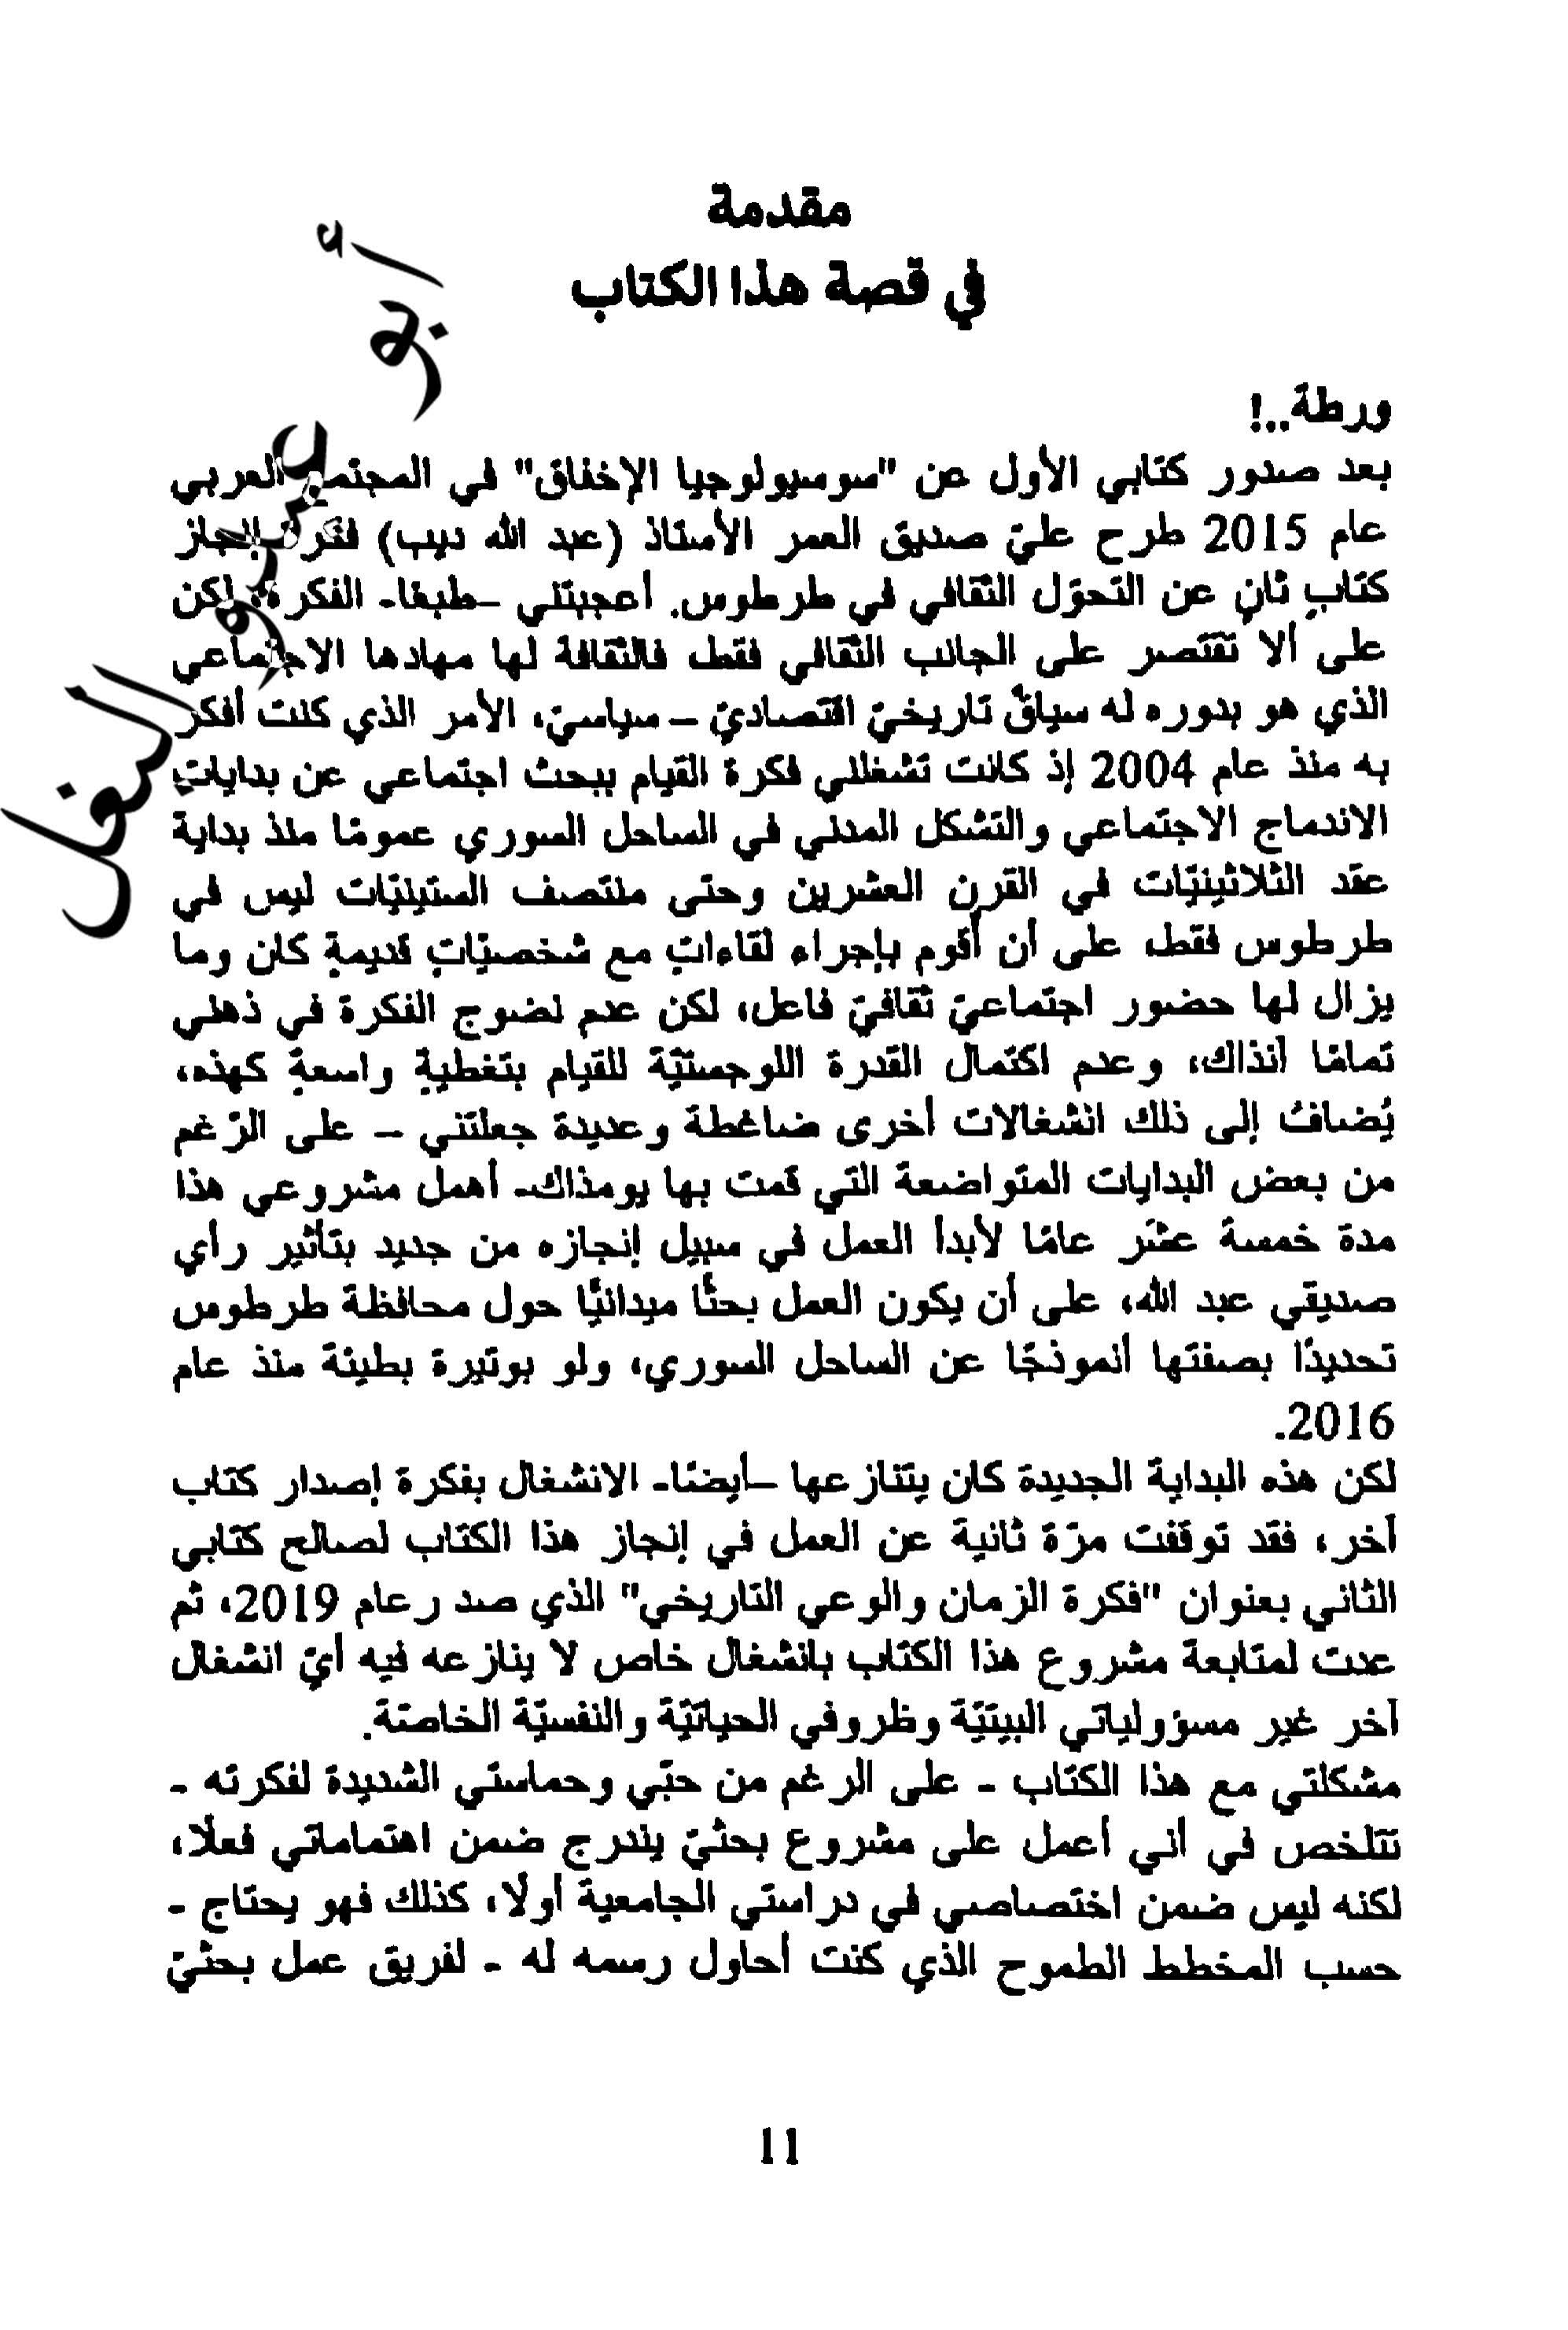 مقدمة
في قصة هذا الكتاب
ورطة..!
بعد صدور كتابي الأول عن "سوسيولوجيا الإخفاق" في المجتمع العربي
عام 2015 طرح عليّ صديق العمر الأستاذ (عبد الله ديب) فكرة إنجاز
كتابٍ ثانٍ عن التحوّل الثقافي في طرطوس. أعجبتني –طبعًا- الفكرة، لكن
على ألا تقتصر على الجانب الثقافي فقط فالثقافة لها مهادها الاجتماعي
الذي هو بدوره له سياقٌ تاريخيّ اقتصاديّ – سياسيّ، الأمر الذي كنت أفكر
به منذ عام 2004 إذ كانت تشغلني فكرة القيام ببحث اجتماعي عن بدايات
الاندماج الاجتماعي والتشكل المدني في الساحل السوري عمومًا منذ بداية
عقد الثلاثينيّات في القرن العشرين وحتى منتصف الستينيّات ليس في
طرطوس فقط، على أن أقوم بإجراء لقاءاتٍ مع شخصيّاتٍ قديمةٍ كان وما
يزال لها حضور اجتماعيّ ثقافيّ فاعل، لكن عدم نضوج الفكرة في ذهني
تمامًا آنذاك، وعدم اكتمال القدرة اللوجستيّة للقيام بتغطيةٍ واسعةٍ كهذه،
يُضافُ إلى ذلك انشغالات أخرى ضاغطة وعديدة جعلتني – على الرّغم
من بعض البدايات المتواضعة التي قمت بها يومذاك- أهمل مشروعي هذا
مدة خمسةَ عشَر عامًا لأبدأ العمل في سبيل إنجازه من جديد بتأثير رأي
صديقي عبد الله، على أن يكون العمل بحثًا ميدانيًّا حول محافظة طرطوس
تحديدًا بصفتها أنموذجًا عن الساحل السوري، ولو بوتيرة بطيئة منذ عام
2016.
لكن هذه البداية الجديدة كان يتنازعها –أيضًا- الانشغال بفكرة إصدار كتاب
آخر، فقد توقفت مرّة ثانية عن العمل في إنجاز هذا الكتاب لصالح كتابي
الثاني بعنوان "فكرة الزمان والوعي التاريخي" الذي صد رعام 2019، ثم
عدت لمتابعة مشروع هذا الكتاب بانشغال خاص لا ينازعه فيه أيّ انشغال
آخر غير مسؤولياتي البيتيّة وظروفي الحياتيّة والنفسيّة الخاصّة.
مشكلتي مع هذا الكتاب - على الرغم من حبّي وحماستي الشديدة لفكرته -
تتلخص في أني أعمل على مشروع بحثيّ يندرج ضمن اهتماماتي فعلًا،
لكنه ليس ضمن اختصاصي في دراستي الجامعية أولًا، كذلك فهو يحتاج -
حسب المخطط الطموح الذي كنت أحاول رسمه له - لفريق عمل بحثيّ
11